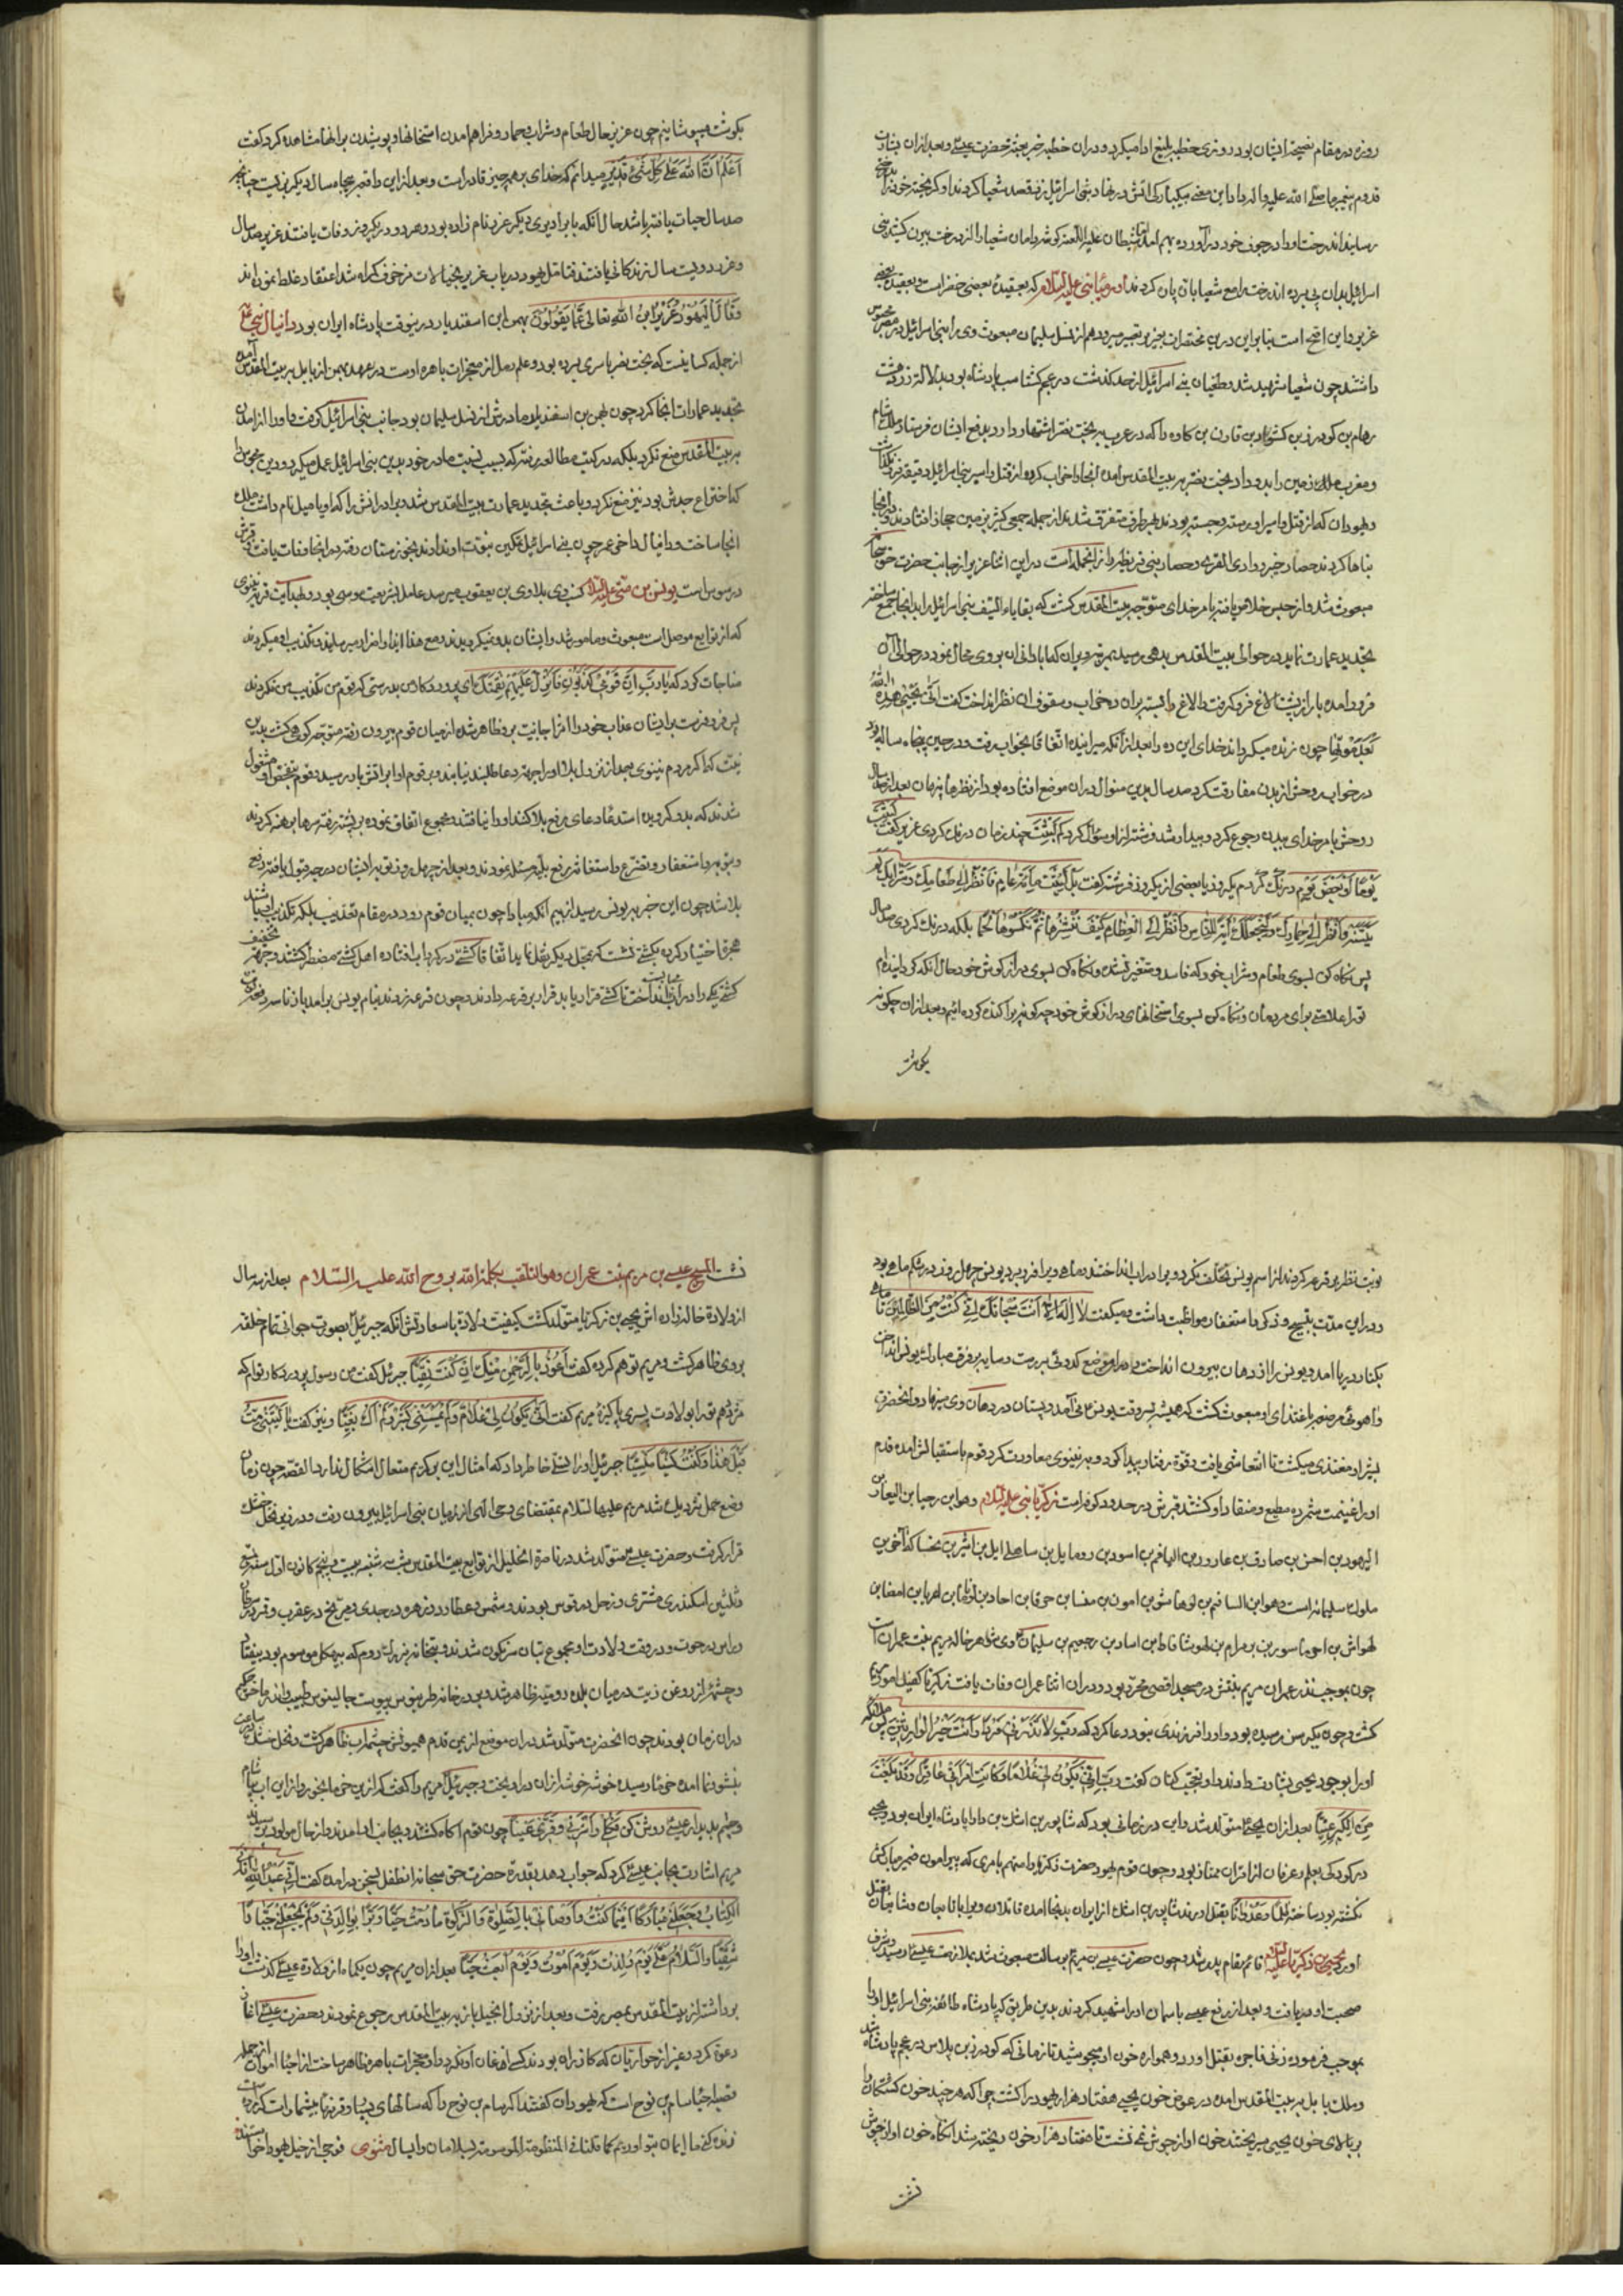 روزه در مقام نصیحة ایشان بود روزی خطبه بلیغ ادا میکرد و دران خطبه خبر بعثة حضرت عیسی و بعد ازان بشارت
قدوم پیغمبر ما صلی الله علیه و اله داد این معنی بنی اسرائیل قصد شعیا کردند او گریخته خود را
رسانید اندرخت او را در جوف خود در آورده بهم امد شیطان علیه اللعنه گوشه دامان شعیا را از درخت بیرون کشید بنی
اسرائیل بدان پی برده اندرخت را مع شعیا پان کردند ارمیا نبی علیه السلام که بعقیدهٔ بعضی خضر است و بعقیدهٔ بعضی
عزیر و این اصح است بنابراین درین مختصر از نسل سلیمان مبعوث
داشتند چون شعیا شهید شد و طغیان بنی اسرائیل از حد گذشت در عجم گشتاسب پادشاه بود بدلالة زردشت
رهام بن گودرز بن کشواد بن قارن بن کاوه را که در عرب به بخت نصر اشتهار دارد بدفع ایشان فرستاد ملک شام
و مغرب زمین را بدو داد بخت نصر به بیت المقدس امده انجا را خراب کرده از قتل و اسیر بنی اسرائیل دقیقه فرو نگذاشت
و یهودان که از قتل و اسیر او رسته و جسته بودند بهر طرف متفرق شدند از جمله جمعی کثیر بزمین حجاز افتادند و انجا
بناها کردند حصار خیبر و وادی القری و حصار بنی قریظه از انجمله است در این اثنا عزیر از جانب حضرت حق سبحانه
مبعوث شد و از حبس خلاص یافته بامر خدای متوجه بیت المقدس گشت که بقایاء السیف بنی اسرائیل را بدانجا جمع ساخته
بتجدید عمارت نماید در حوالی بیت المقدس بدهی رسید بمرتبه ویران که ابادانی ان بر وی محال نمود در حوالی آن
فرود امده بار از پشت الاغ فرو گرفت و الاغ را بسته بران ده خراب و سقوف ان نظر انداخت گفت انی یحیی هذه الله
بعد موتها چون زنده میکرداند خدای این ده را بعد از آنکه میرانیده اتفاقا بخواب رفت و در حین پنجاه ساله بود
در خواب روحش از بدن مفارقت کرد صد سال بدین منوال دران موضع افتاده بود از نظرها پنهان بعد از صد سال
روحش بامر خدای ببدن رجوع کرد و بیدار شد فرشته از او سؤال کرد کم لبثت چند زمان درنگ کردی عزیر گفت لبثت
یوما او بعض یوم درنگ کردم یکروز یا بعضی از یکروز فرشته گفت بل لبثت مائة عام فانظر الی طعامک و شرابک لم
یتسنه و انظر الی حمارک و لنجعلک آیة للناس و انظر الی العظام کیف ننشزها ثم نکسوها لحما بلکه درنگ کردی صد سال
پس نگاه کن بسوی طعام و شراب خود که فاسد و متغیر نشده و نگاه کن بسوی درازگوش خود حال انکه گردانیدم
تورا علامتی برای مردمان و نگاه کن بسوی استخانهای درازگوش خود چگونه پراکنده کرده ایم و بعد ازان چگونه
بگوشت
بگوشت میپوشانیم چون عزیر حال طعام و شراب و حمار و فراهم امدن استخانها و پوشیدن بر انها مشاهده کرد گفت
اعلم ان الله علی کل شیء قدیر میدانم که خدای بر همه چیز قادر است و بعد از این واقعه پنجاه سال دیگر بزیست چنانچه
صد سال حیات یافته باشد حال آنکه با برادری دیگر عزر نام زاده بود و هر دو در یکروز وفات یافتند عزیر صد سال
و عزر دویست سال زندگانی یافتند قتا مثل یهود در باب عزیر بخیالات مزخرف گمراه شد اعتقاد غلط نموده اند
و قالت الیهود عزیر ابن الله تعالی عما یقولون بهمن ابن اسفندیار در ینوقت پادشاه ایران بود دانیال نبی ع
از جمله کسانیست که بخت نصر باسری برده بود و علم رمل از معجزات باهره اوست در عهد بهمن از بابل به بیت المقدس آمده
تجدید عمارات انجا کرد چون بهمن بن اسفندیار مادرش از نسل سلیمان بود جانب بنی اسرائیل گرفت و او را از امدن
به بیت المقدس منع نکرد بلکه در کتب مطالعه رفته که بسبب نسبت مادر خود بدین بنی اسرائیل عمل میکرد و دین مجوس را
که اختراع جدش بود نیز منع نکرد و باعث تجدید عمارت بیت المقدس شد
انجا ساخت و دانیال داخر عمر چون بنی اسرائیل تمکین نبوت او ندادند بخوزستان رفته در انجا وفات یافت قبرش
در سوس است یونس بن متی علیه السلام بلاوی بن یعقوب میرسد عامل بشریعت موسی بود و بهدایت قریه نینوی
که از توابع موصل است مبعوث و مامور شد و ایشان بدو نمیگرویدند مع هذا ایذا و اضرار میرسانیدند و تکذیب او میکردند
مناجات کرد که یا رب ان قومی کذبون فانزل علیهم نقمتک ای پروردگار من بدرستی که قوم من تکذیب من نکردند
پس فرو فرست بر ایشان عذاب خود را اثر اجابت برو ظاهر شده از میان قوم بیرون رفته متوجه کوهی گشت بدین
نیت که اکر مردم نینوی بعد از نزول بلا او را بجهة دعا طلبند نیابند و بر قوم او ابر اتش بار رسید قوم بتفحص او مشغول
شدند که بدو گرویده استدعاء دعای رفع بلا کنند او را نیافتند مجموع اتفاق نموده بر پشته رفته سرها برهنه کردند
و بتوبه و استغفار و تضرع و استغاثه رفع بلیه مسئله نمودند و بعد از چهل روز توبه ایشان درجه قبول یافته رفع
بلا شد چون این خبر به یونس رسید از بیم انکه مبادا چون بمیان قوم رود در مقام تعذیب بلکه تکذیب او باشند
هجرة اختیار کرده بکشتی نشست که بمحل دیگر نقل نماید اتفاقا کشتی در گرداب افتاده اهل کشتی مضطر گشتند و جهة تخفیف
کشتی یکی را در آب باید انداخت تا کشتی قرار یابد قرار بر قرعه دادند و چون قرعه زدند بنام یونس برامد باز تا سه مرتبه
نوبت نظر بر قرعه کردند از اسم یونس تخلف نکرد و او را در اب انداختند و ماهی ویرا فرو برد یونس چهل روز در شکم ماهی بود
و در این مدت بتسبیح و ذکر و استغفار مواظبت داشت و میگفت لا اله الا انت سبحانک انی کنت من الظالمین تا ماهی
بکنار دریا امد و یونس را از دهان بیرون انداخت در ان موضع کدوئی بررست و سایه بر فرق مبارک یونس انداخت
و اهوئی مرضعه باغتذای او مبعوث گشت که همیشه بوقت یونس می آمد و پستان در دهان وی مینهاد و انحضرت
بشیر او مغتذی میگشت تا انتعاشی یافت و قوة رفتار پیدا کرد و به نینوی معاودت کرد قوم باستقبالش امده قدم
او را غنیمت شمرده مطیع و منقاد او گشتند قبرش در حدود کوفه است زکریا نبی علیه السلام و هو ابن برخیا بن
الیهود بن احسن بن صادق بن عازور بن الیاقیم بن اسود بن رومایل بن ساهلی ایل بن اشیر بن یحسا که آخرین
ملوک سلیمانه است و هو ابن الساقیم بن لوهما شو بن امون بن مفسا بن حزقیا بن احاد بن یوثام بن امصیا بن
لهواش بن احوما سور بن بهرام بن لهوشا قاط بن اساد بن رجعیم بن سلیمان ع وی شوهر خاله مریم بنت عمران است
چون بموجب نذر عمران مریم بنفس در مسجد اقصی محرر بود و دران اثنا عمران وفات یافت زکریا کفیل امور
گشت و چون بکبر سن رسیده بود و او را فرزندی نبود دعا کرد که رب لا تذرنی فردا و انت خیر الوارثین پس ملائکه
او را بوجود یحیی بشارت دادند او تعجب کنان گفت رب انی یکون لی غلام و کانت امرأتی عاقرا و قد بلغت
من الکبر عتیا بعد ازان یحیی متولد شد و این در زمانی بود که شاپور بن اشک بن دارا پادشاه ایران بود یحیی
در کودکی بعلم و عرفان از اقران ممتاز بود و چون قوم یهود حضرت زکریا را متهم بامری که پیرامون ضمیر مبارکش
نگشته بود ساخته ظلما و عدوانا بقتل اوردند شاپور بن اشک از ایران بدانجا امده قاتلان ویرا بقتل
اورد یحیی بن زکریا علیه السلام قائم مقام پدر شد و چون حضرت عیسی بن مریم برسالت مبعوث شد بملازمت عیسی ع رسید و شرف
صحبت او دریافت و بعد از رفع عیسی باسمان او را شهید کردند بدین طریق که پادشاه طائفه بنی اسرائیل او را
بموجب فرموده زنی فاجره بقتل اورد و همواره خون او میجوشید تا زمانی که گودرز بن پلاس در عجم پادشاه شد
و ملک بابل به بیت المقدس امده در عوض خون یحیی هفتاد هزار یهود را گشت چرا که هر چند خون کشتگان را
بر بالای خون یحیی میریختند خون او از جوش نمی نشست تا هفتاد هزار خون ریخته شد انگاه خون او از جوش
نشست
نشست المسیح عیسی بن مریم بنت عمران و هو الملقب بکلمة الله بروح الله علیه السلام بعد از سه سال
از ولادة خاله زاده اش یحیی بن زکریا متولد گشت کیفیت ولادة باسعادتش آنکه جبرئیل بصورت جوانی تمام خلقه
بر وی ظاهر گشت و مریم توهم کرده گفت اعوذ بالرحمن منک ان کنت تقیا جبرئیل گفت من رسول پروردگار توام که
مژدهم تو را بولادت پسری پاکیزه مریم گفت انی یکون لی غلام و لم یمسسنی بشر و لم اک بغیا و نیز گفت یا لیتنی مت
قبل هذا و کنت نسیا منسیا جبرئیل او را تسلی خاطر داد که امثال این بر کریم متعال اشکال ندارد القصه چون زمان
وضع حمل نزدیک شد مریم علیها السلام بمقتضای وحی الهی از میان بنی اسرائیل بیرون رفت و در زیر نخل خشک
قرار گرفت و حضرت عیسی ع متولد شد در ناصرة الخلیل از توابع بیت المقدس شب سه شنبه بیست و پنجم کانون اول سنه
ثلثین اسکندری مشتری و زحل در قوس بودند و شمس و عطارد و زهره در جدی و مریخ در عقرب و قمر در سرطان
و راس در حوت و در وقت ولادت او مجموع بتان سرنگون شدند و بتخانه بزرک روم که بهیکل موسوم بود بیفتاد
و چشمه از روغن زیت در میان بلده رومیه ظاهر شد
دران زمان بودند چون انحضرت متولد شد دران موضع از یمن قدم همیونش چشمه اب ظاهر گشت و نخل خشک در ساعت
بنشو و نما امده خرما رسیده خوشه خوشه ازان در اویخت و جبرئیل مریم را گفت که ازین خرما بخور و از این اب بیاشام
و چشم بدیدار عیسی روشن کن فکلی و اشربی و قری عینا چون قوم اگاه گشتند و بجانب او امدند و از حال مولود پرسیدند
مریم اشارت بجانب عیسی کرد که جواب دهد بقدرة حضرت حق سبحانه انطفل بسخن درامده گفت انی عبد الله آتانی
الکتاب و جعلنی مبارکا اینما کنت و اوصانی بالصلوة و الزکوة ما دمت حیا و برا بوالدتی و لم یجعلنی جبارا
شقیا و السلام علی یوم ولدت و یوم اموت و یوم ابعث حیا بعد ازان مریم چون یکماه از ولادة عیسی گذشت او را
برداشته از بیت المقدس بمصر رفت و بعد از نزول انجیل باز به بیت المقدس رجوع نمودند و حضرت عیسی اغاز
دعوة کرد و غیر از حواریان که گازران بودند کسی اذعان او نکرد و او معجزات باهره ظاهر ساخت از احیا اموات از جمله
قضیه احیاء سام بن نوح است که یهودان گفتند اکر سام بن نوح را که سالهای بسیار و قرنهای بیشمار است که مرده
زنده کنی ما ایمان بتو اوریم کما قلنا فی المنظومة الموسومة بسلامان و ابسال مثنوی فوجی از خیل یهود